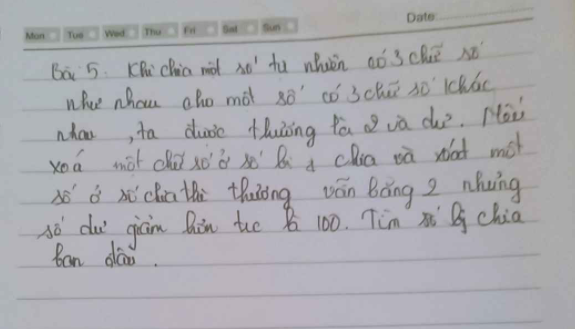 Mon Tue Wed Thu Fri Sat Sun Date
Bài 5. Khi chia một số tự nhiên có 3 chữ số
như nhau cho một số có 3 chữ số khác
nhau, ta được thương là 2 và dư. Nếu
xoá một chữ số ở số bị chia và xoá một
số ở số chia thì thương vẫn bằng 2 nhưng
số dư giảm hơn trước là 100. Tìm số bị chia
ban đầu.